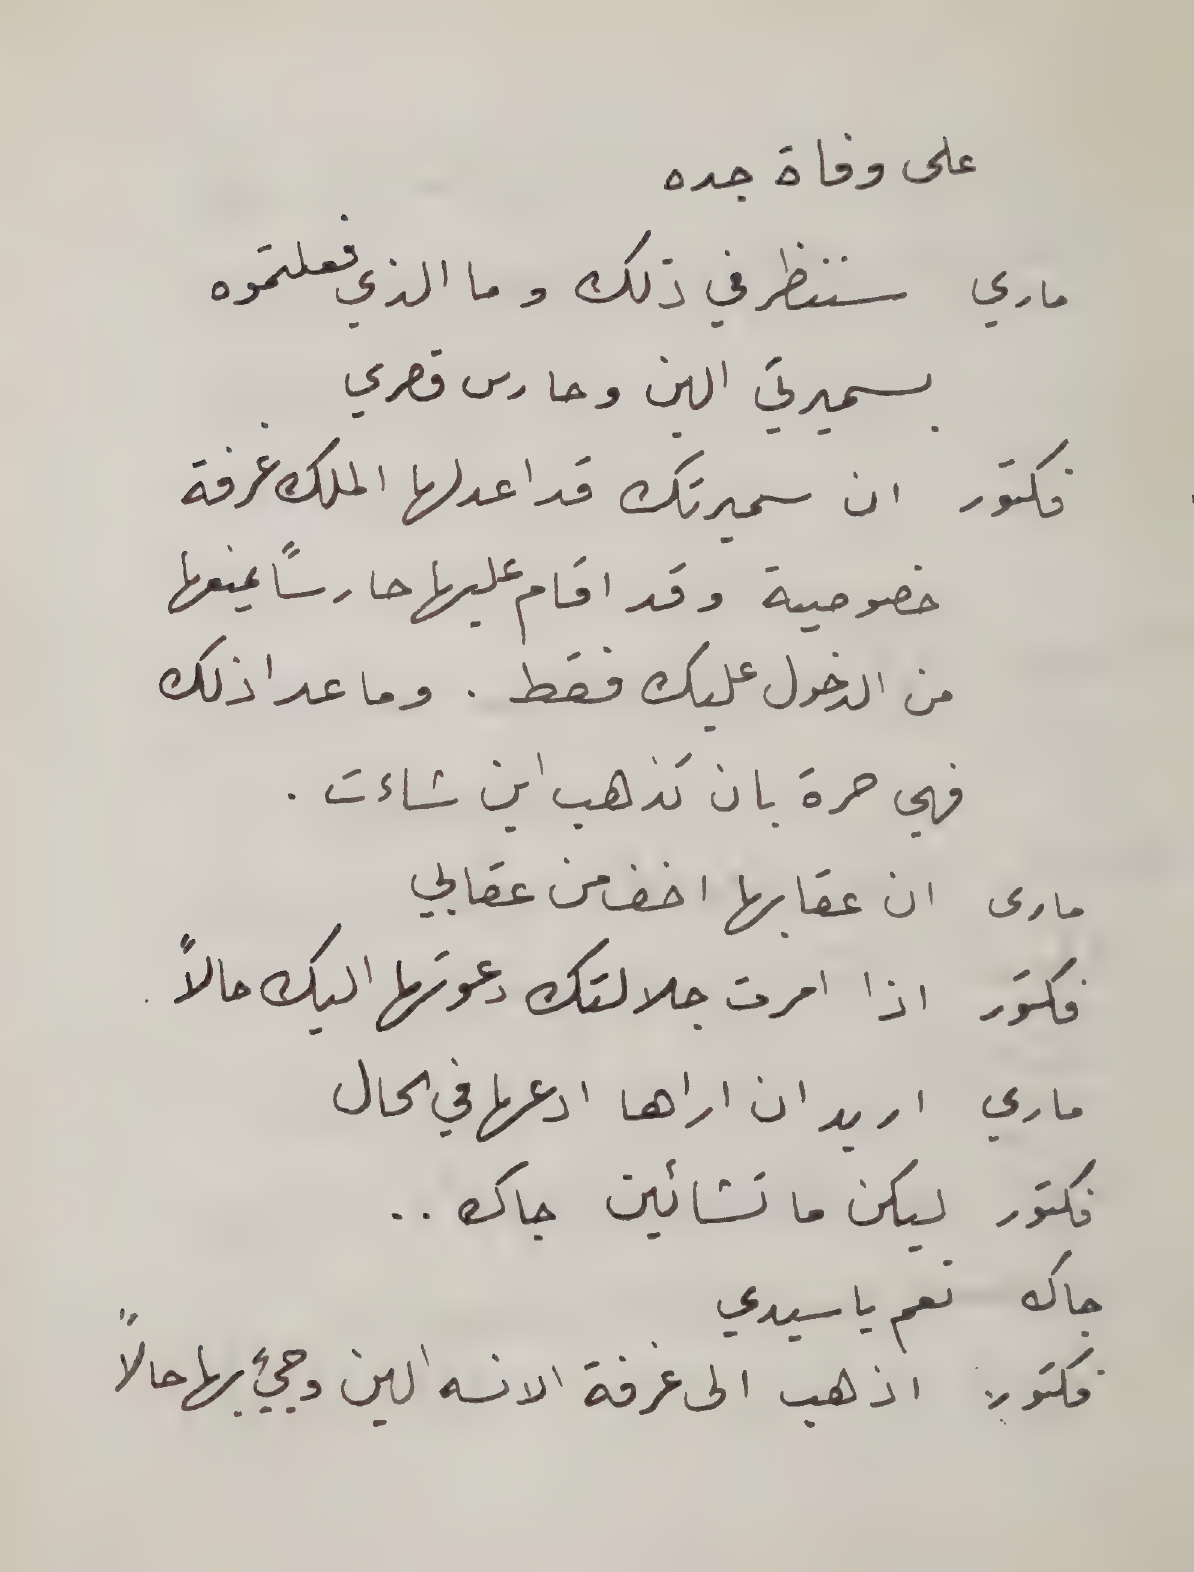 على وفاة جده
ماري ستنظر في ذلك وما الذي فعلتموه
بسميرتي الين وحارس قصري
فكتور ان سميرتك قد اعد لها الملك غرفة
خصوصية وقد اقام عليها حارساً يمنعها
من الدخول عليك فقط . وما عدا ذلك
فهي حرة بان تذهب اين شاءت .
مارى ان عقابها اخف من عقابي
فكتور اذا امرت جلالتك دعوتها اليك حالاً .
ماري اريد ان اراها ادعها في الحال
فكتور ليكن ما تشائين جاك ..
جاك نعم يا سيدي
فكتور: اذهب الى غرفة الانسه الين وجيئ بها حالاً